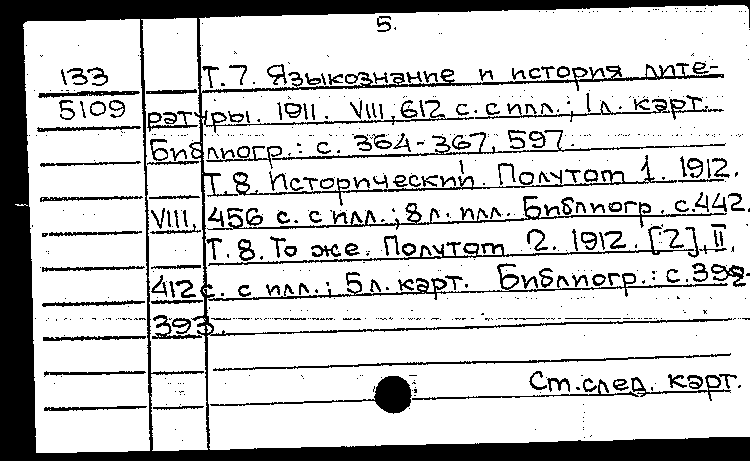 5.
133 Т.7. Языкознание и история лите-
5109 ратуры. 1911. VIII, 612 с. с илл.; 1 л. карт.
Библиогр.: с. 364-367, 597.
Т.8. Исторический. Полутом 1. 1912.
VIII, 456 с. с илл.; 8 л. илл. Библиогр. с.442.
Т.8. То же. Полутом 2. 1912. [2], II,
412 с. с илл.; 5 л. карт. Библиогр.: с.392-
393.
См.след. карт.